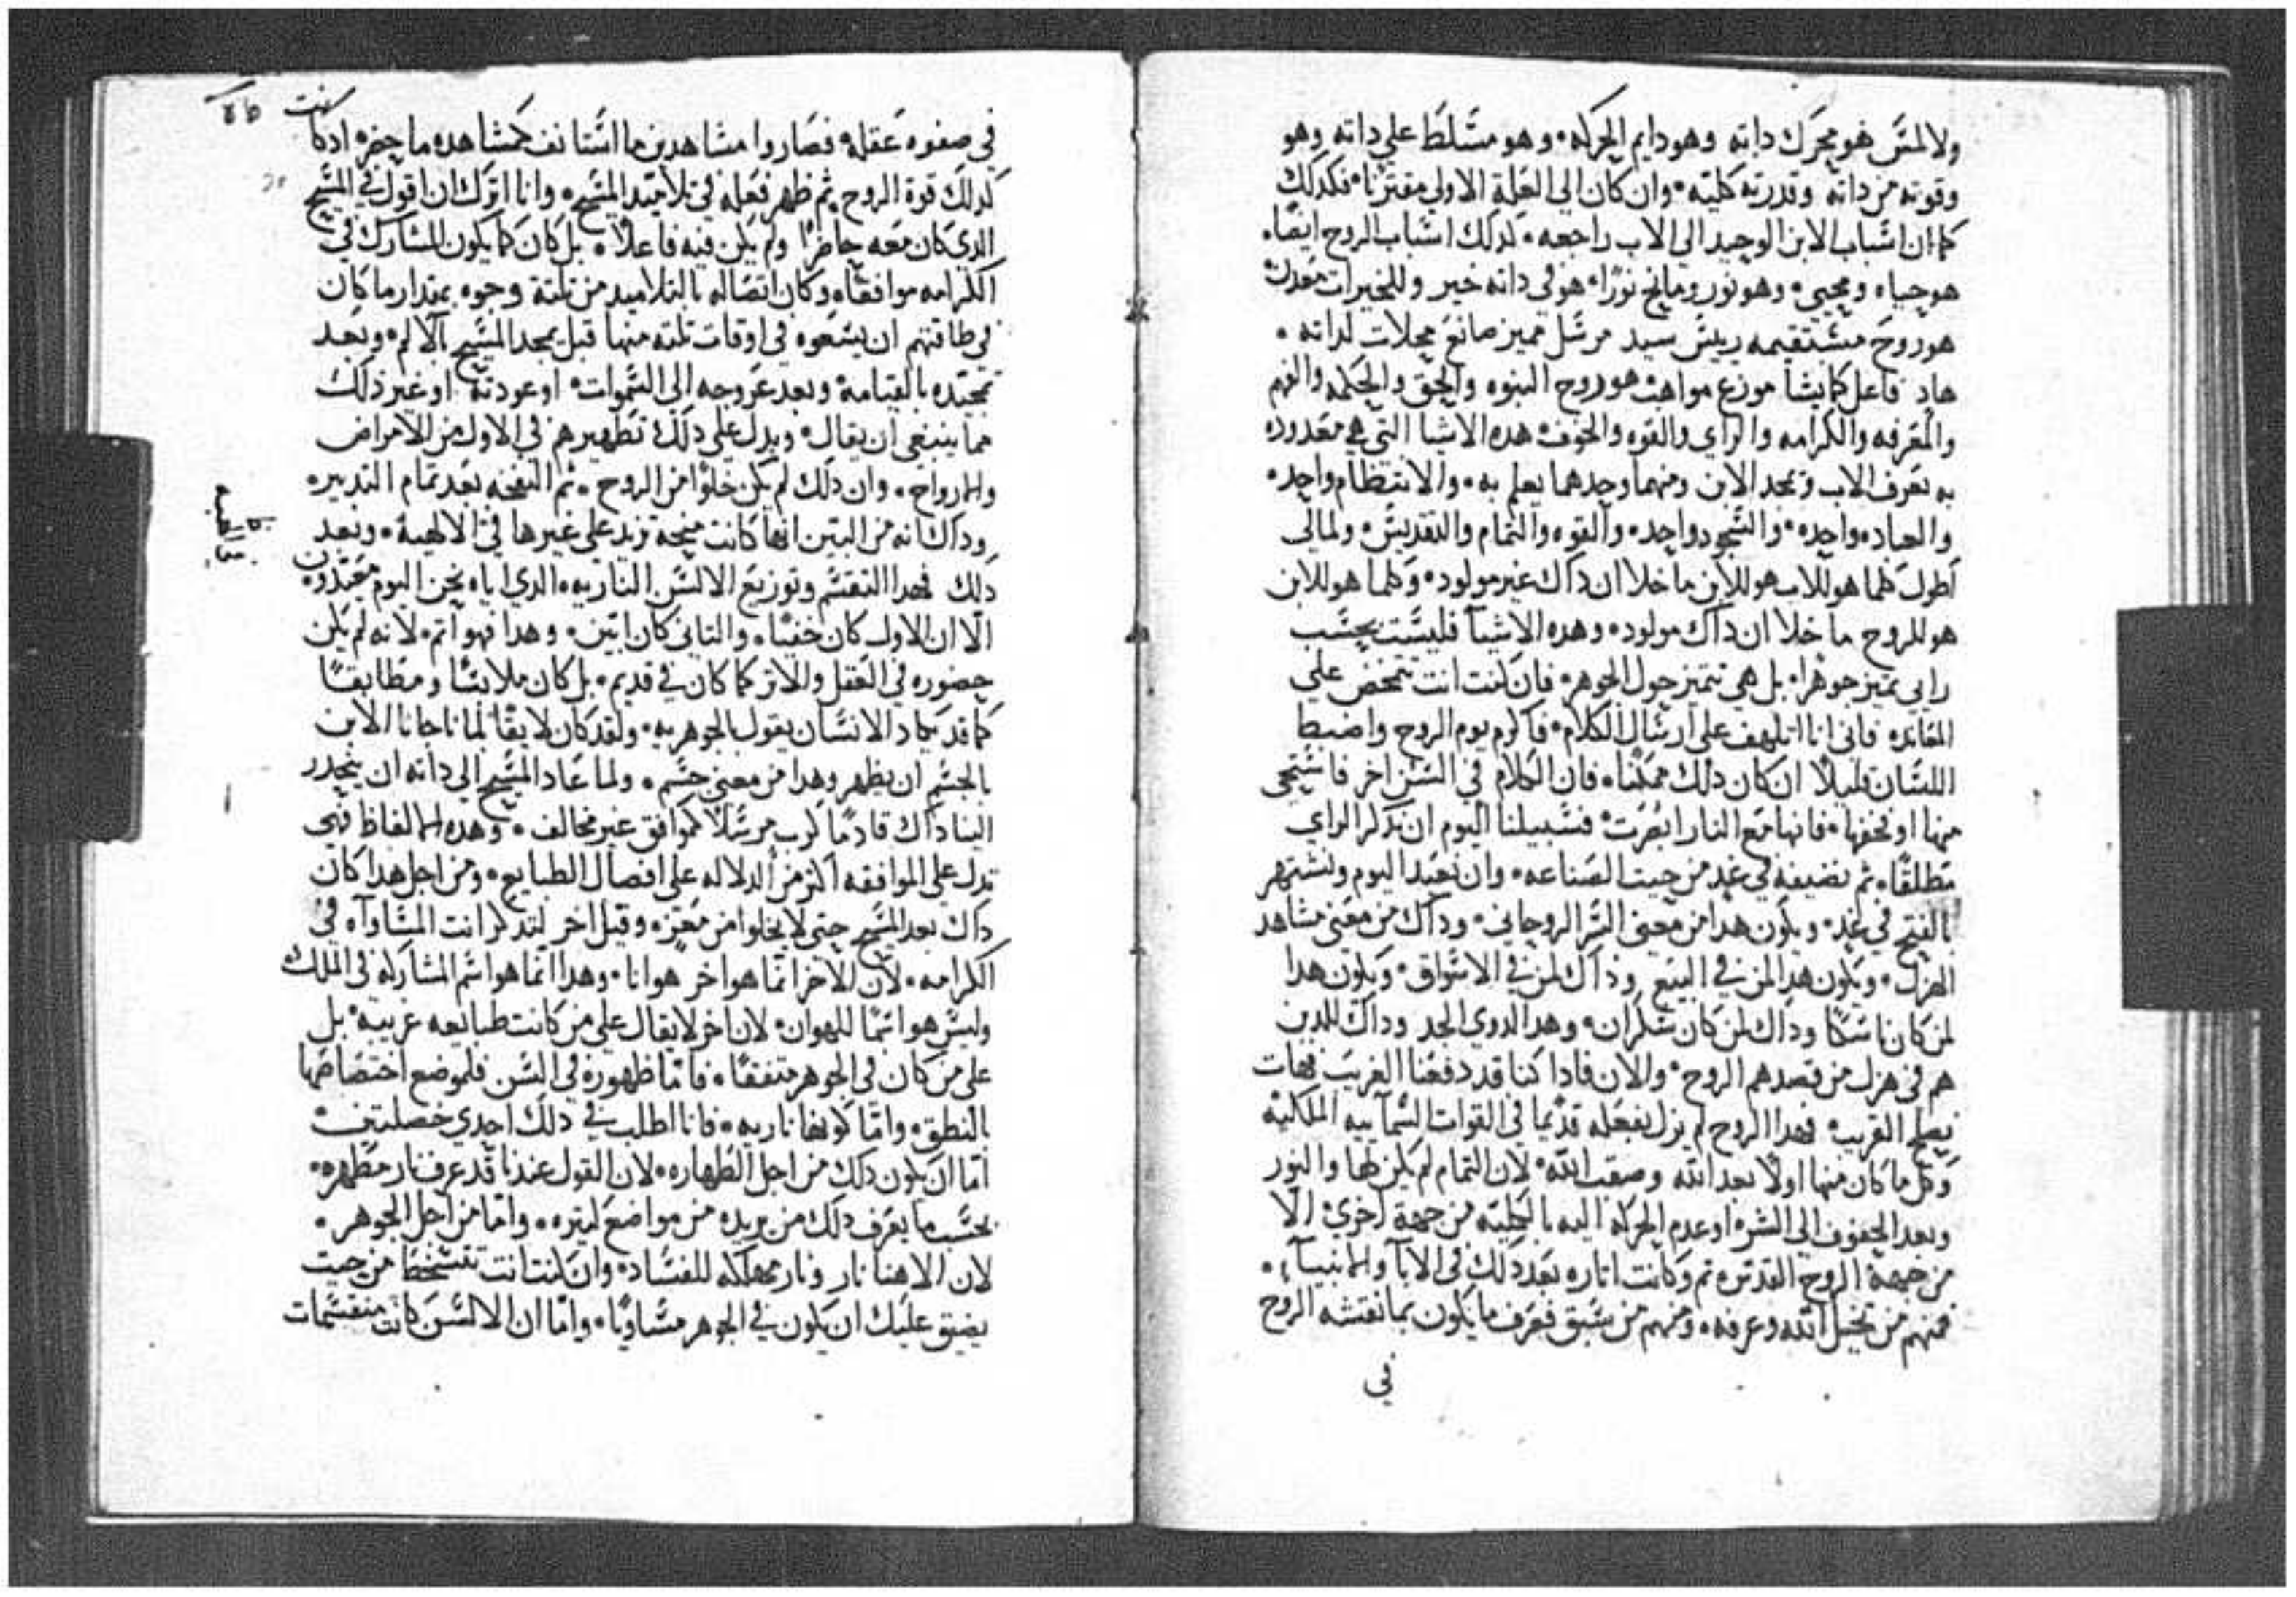 ولا لمس هو محرك داته وهو دايم الحركه وهو مسلط علي داته وهو
وقوته من داته وقدرته كليته وان كان الي العلة الاولي مقترنا فكدلك
كما ان اسباب الابن الوحيد الي الاب راجعه كدلك اسباب الروح ايضا
هو حياه ومحيي وهو نور ومانح نورا هو في داته خير وللخيرات معدن
هو روح مستقيمه رييس سيد مرسل مميز صانع محلات لداته
هاد فاعل كما يشا موزع مواهب هو روح البنوه والحق والحكمه والفهم
والمعرفه والكرامه والراي والقوه والخوف هده الاشيا التي هي معدوده
به نعرف الاب ونمجد الابن ومنهما وحدهما يعلم به والانتظام واحد
والعباده واحده والسجود واحد والقوه والتمام والتقديس ولمالي
اطول كلما هو للاب هو للابن ما خلا ان داك غير مولود وكلما هو للابن
هو للروح ما خلا ان داك مولود وهده الاشيآ فليست بحسب
رايي تميز جوهرا بل هي تتميز حول الجوهر فان كنت انت تتمخض علي
المعانده فاني انا اتلهف علي ارسال الكلام فاكرم يوم الروح واضبط
اللسان قليلا ان كان دلك ممكنا فان الكلام في السن اخر فاستحي
منها او نخفها فانها مع النار ابصرت فسبيلنا اليوم ان نذكر الراي
مطلقا ثم نضيفه في غد من حيت الصناعه وان نعيد اليوم ونشتهر
بالفتح في غد ويكون هدا من معني السر الروحاني وداك من معني مشاهد
الهزل ويكون هدا لمن في البيع وذاك لمن في الاسواق ويكون هدا
لمن كان ناسكا وداك لمن كان سكران وهدا لدوي الجد وداك للدين
هم في هزل من قصدهم الروح والان فادا كنا قد دفعنا الغريب فهات
نصلح القريب فهدا الروح لم يزل بفعله قديما في القوات السمآييه الملكيه
وكل ما كان منها اولا بعد الله وصقب الله لان التمام لم يكن لها والنور
وبعد الخفوف الي الشر او عدم الحركه اليه بالكليه من جهة اخري الا
من جهة الروح القدس ثم وكانت اناره بعد دلك في الابآ والانبيآ
فمنهم من تخيل الله وعرفه ومنهم من سبق فعرف ما يكون بما نقشه الروح
في
في صفوه عقله فصاروا مشاهدين ما استانف كمشاهده ما حضر اد كانت
كدلك قوة الروح ثم ظهر فعله في تلاميد المسيح وانا اترك ان اقول في المسيح
الدي كان معه حاضرا ولم يكن فيه فاعلا بل كان كما يكون المشارك في
الكرامه موافقا وكان اتصاله بالتلاميد من تلتة وجوه بمقدار ما كان
في طاقتهم ان يسعوه في اوقات تلته منها قبل يمجد المسيح بالالم وبعد
تمجيده بالقيامه وبعد عروجه الي السموات او عودته او غير ذلك
مما ينبغي ان يقال ويدل علي دلك تطهيرهم في الاول من الامراض
والارواح وان دلك لم يكن خلوا من الروح ثم النفخه بعد تمام التدبير
وداك انه من البين انها كانت منيحه تزيد علي غيرها في الالهية وبعد
دلك فهدا التقسم وتوزيع الالسن الناريه الدي اياه نحن اليوم معيدون
الا ان الاول كان خفيا والتاني كان ابين وهدا فهو اتم لانه لم يكن
حضوره في العقل والاتر كما كان في قديم بل كان ملابسا ومطابقا
كما قد يكاد الانسان يقول بالجوهريه ولقد كان لايقا لما ناجانا الابن
بالجسم ان يظهر وهدا من معني جسم ولما عاد المسيح الي داته ان ينحدر
الينا داك قادما كرب مرسلا كموافق غير مخالف وهده الالفاظ فهي
تدل علي الموافقه اكتر من الدلاله علي افصال الطبايع ومن اجل هدا كان
داك بعد المسيح حتي لا يخلوا من معز وقيل اخر لتدكر انت المساواه في
الكرامه لان الاخر انما هو اخر هو انا وهدا انما هو اسم المشاركه في الملك
وليس هو اسما للهوان لان اخر لا يقال علي من كانت طبايعه غريبه بل
علي من كان في الجوهر متفقا فاما ظهوره في السن فلموضع اختصاصها
بالنطق واما كونها ناريه فانا اطلب في دلك احدي خصلتين
اما ان يكون دلك من اجل الطهاره لان القول عندنا قد عرف نار مطهره
بحسب ما يعرف دلك من يريده من مواضع كتيره واما من اجل الجوهر
لان الاهنا نار ونار مهلكه للفساد وان كنت انت تتسخط من حيت
يضيق عليك ان يكون في الجوهر مساويا واما ان الالسن كانت منقسمات